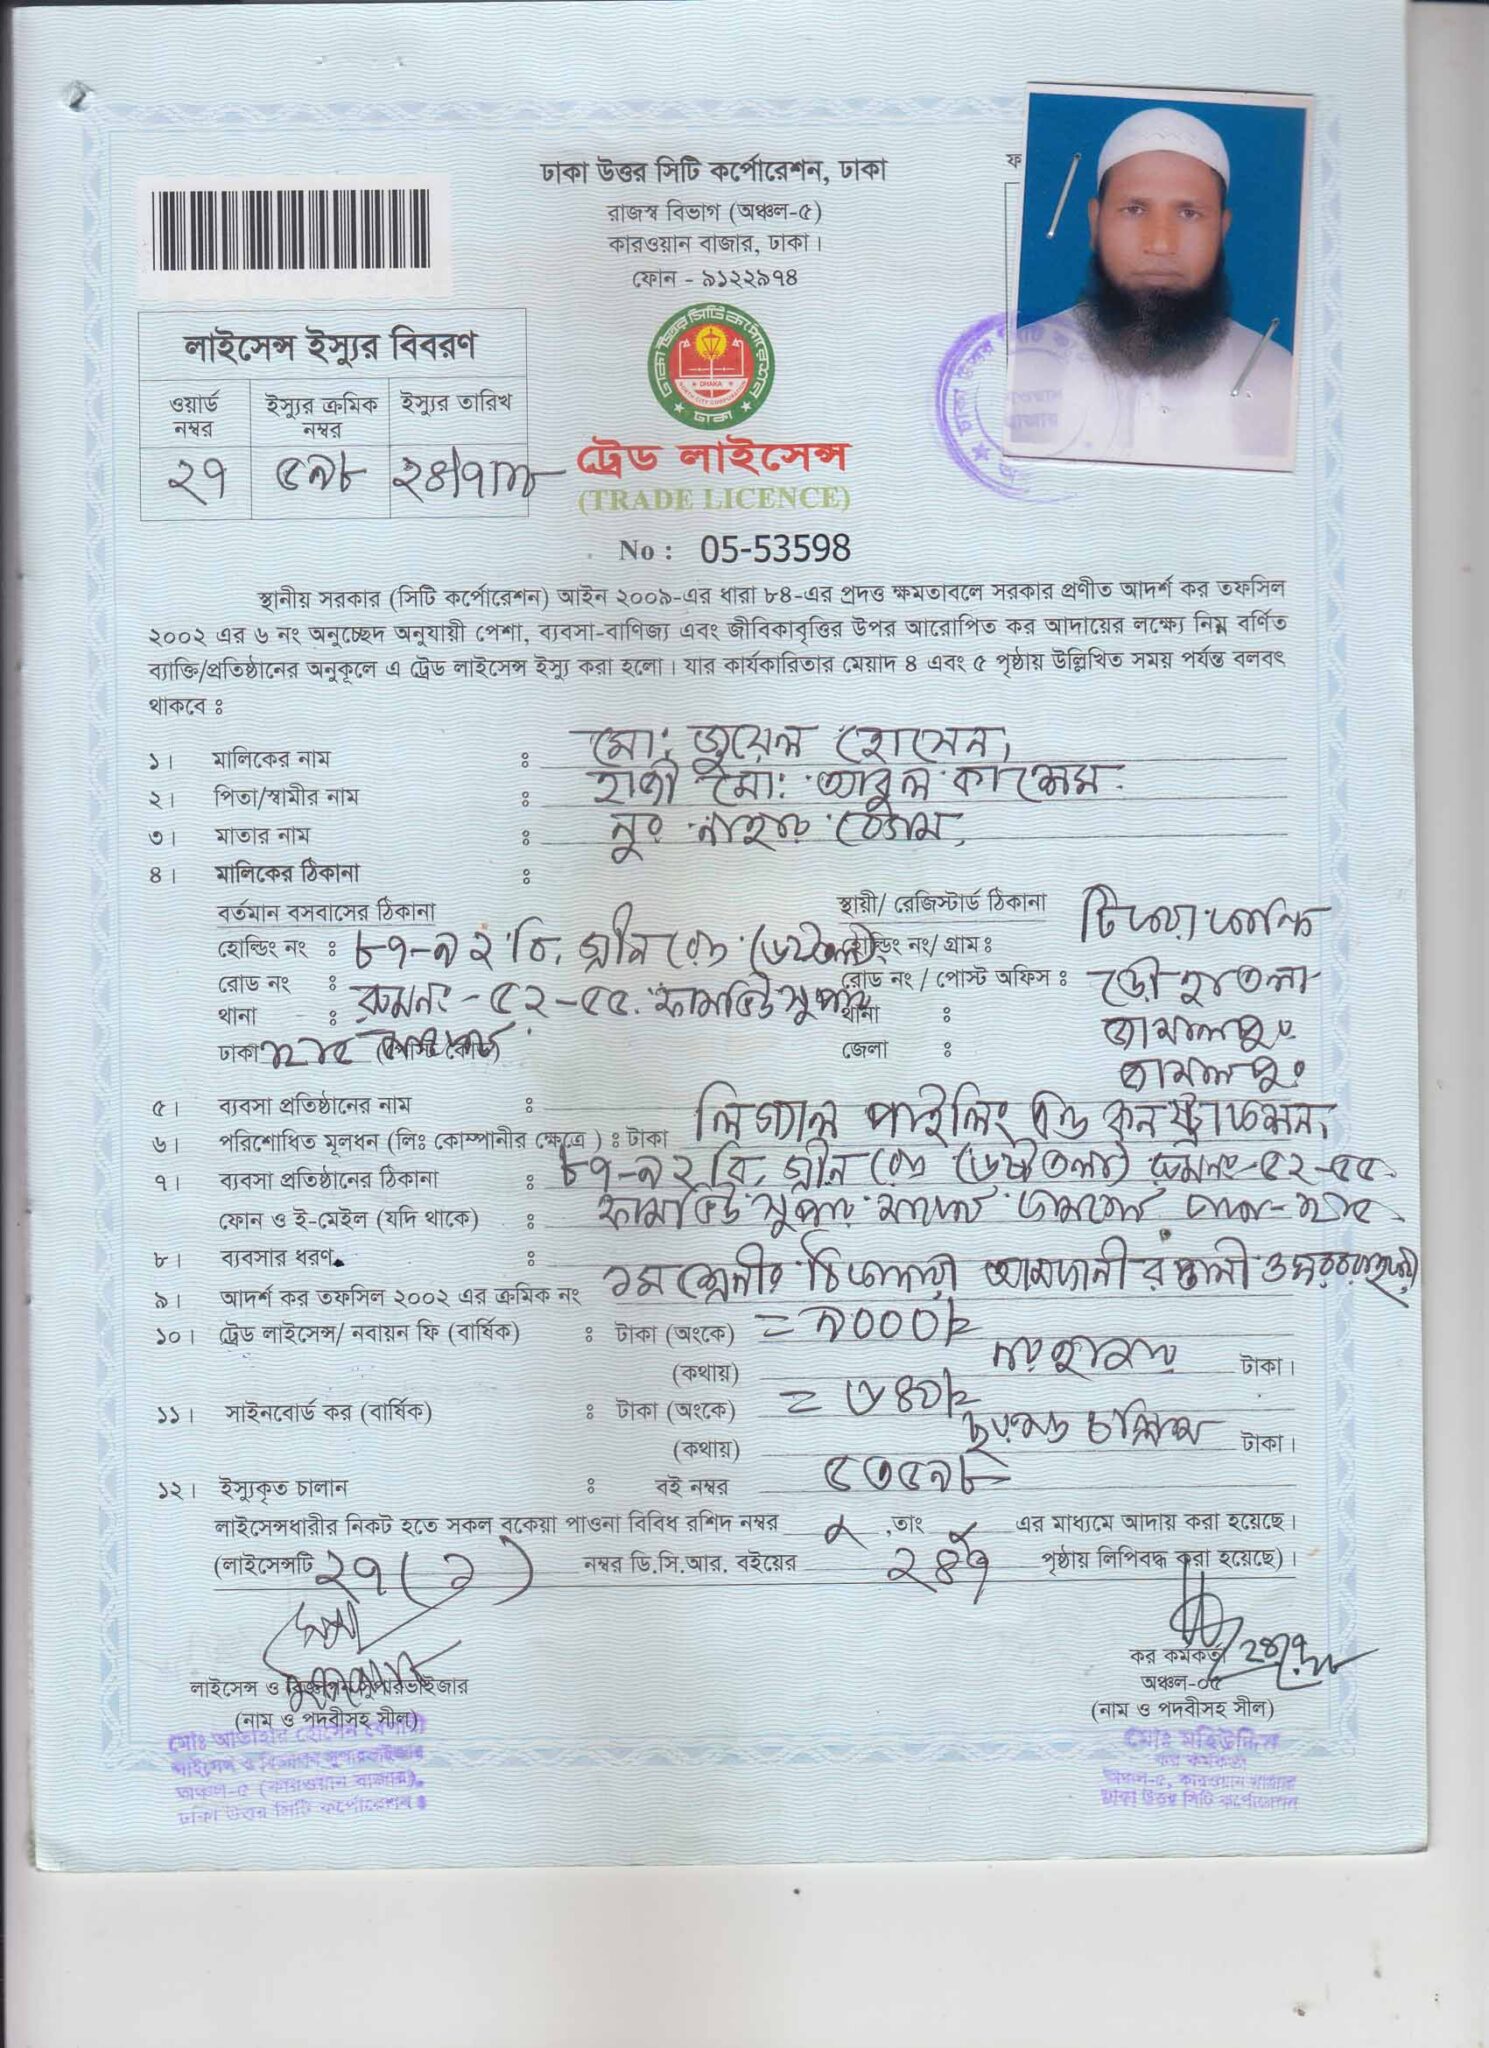 ঢাকা উত্তর সিটি কর্পোরেশন, ঢাকা
রাজস্ব বিভাগ (অঞ্চল-৫)
কারওয়ান বাজার, ঢাকা।
ফোন - ৯১২২৯৭৪
লাইসেন্স ইস্যুর বিবরণ
ওয়ার্ড নম্বর ইস্যুর ক্রমিক নম্বর ইস্যুর তারিখ
২৭ ৫৯৮ ২৪/৭/১৮
ঢাকা উত্তর সিটি কর্পোরেশন
DHAKA
NORTH CITY CORPORATION
ঢাকা
ট্রেড লাইসেন্স
(TRADE LICENCE)
No : 05-53598
স্থানীয় সরকার (সিটি কর্পোরেশন) আইন ২০০৯-এর ধারা ৮৪-এর প্রদত্ত ক্ষমতাবলে সরকার প্রণীত আদর্শ কর তফসিল
২০০২ এর ৬ নং অনুচ্ছেদ অনুযায়ী পেশা, ব্যবসা-বাণিজ্য এবং জীবিকাবৃত্তির উপর আরোপিত কর আদায়ের লক্ষ্যে নিম্ন বর্ণিত
ব্যাক্তি/প্রতিষ্ঠানের অনুকূলে এ ট্রেড লাইসেন্স ইস্যু করা হলো। যার কার্যকারিতার মেয়াদ ৪ এবং ৫ পৃষ্ঠায় উল্লিখিত সময় পর্যন্ত বলবৎ
থাকবে ঃ
১। মালিকের নাম ঃ মো: জুয়েল হোসেন,
২। পিতা/স্বামীর নাম ঃ হাজী মো: আবুল কাশেম
৩। মাতার নাম ঃ নুর নাহার বেগম,
৪। মালিকের ঠিকানা ঃ
বর্তমান বসবাসের ঠিকানা স্থায়ী/ রেজিস্টার্ড ঠিকানা
হোল্ডিং নং ঃ ৮৭-৯২ বি, গ্রীন রোড হোল্ডিং নং/ গ্রাম ঃ
রোড নং ঃ রুমনং-৫২-৫৫ ফার্মভিউ সুপার রোড নং / পোস্ট অফিস ঃ
থানা ঃ থানা ঃ জামালপুর
ঢাকা (পোস্ট কোড) জেলা ঃ জামালপুর
৫। ব্যবসা প্রতিষ্ঠানের নাম ঃ লিগ্যাল পাইলিং এন্ড কনস্ট্রাকশন,
৬। পরিশোধিত মূলধন (লিঃ কোম্পানীর ক্ষেত্রে ) ঃ টাকা
৭। ব্যবসা প্রতিষ্ঠানের ঠিকানা ঃ ৮৭-৯২ বি, গ্রীন রোড রুমনং-৫২-৫৫
ফোন ও ই-মেইল (যদি থাকে) ঃ ফার্মভিউ সুপার মার্কেট
৮। ব্যবসার ধরণ ঃ ১ম শ্রেনীর ঠিকাদারী আমদানী রপ্তানী ও সরবরাহকারী
৯। আদর্শ কর তফসিল ২০০২ এর ক্রমিক নং
১০। ট্রেড লাইসেন্স/ নবায়ন ফি (বার্ষিক) ঃ টাকা (অংকে) = ৯০০০/=
(কথায়) নয় হাজার টাকা।
১১। সাইনবোর্ড কর (বার্ষিক) ঃ টাকা (অংকে) = ৬৪০/=
(কথায়) ছয়শত চল্লিশ টাকা।
১২। ইস্যুকৃত চালান ঃ বই নম্বর ৫৩৫৯৮
লাইসেন্সধারীর নিকট হতে সকল বকেয়া পাওনা বিবিধ রশিদ নম্বর ,তাং এর মাধ্যমে আদায় করা হয়েছে।
(লাইসেন্সটি ২৭ (১) নম্বর ডি.সি.আর. বইয়ের পৃষ্ঠায় লিপিবদ্ধ করা হয়েছে)।
লাইসেন্স ও বিজ্ঞাপন সুপারভাইজার
(নাম ও পদবীসহ সীল)
কর কর্মকর্তা
অঞ্চল-০৫
(নাম ও পদবীসহ সীল)
লাইসেন্স ও বিজ্ঞাপন সুপারভাইজার
অঞ্চল-৫ (কারওয়ান বাজার),
ঢাকা উত্তর সিটি কর্পোরেশন।
মোঃ মহিউদ্দিন
কর কর্মকর্তা
অঞ্চল-৫, কারওয়ান বাজার
ঢাকা উত্তর সিটি কর্পোরেশন